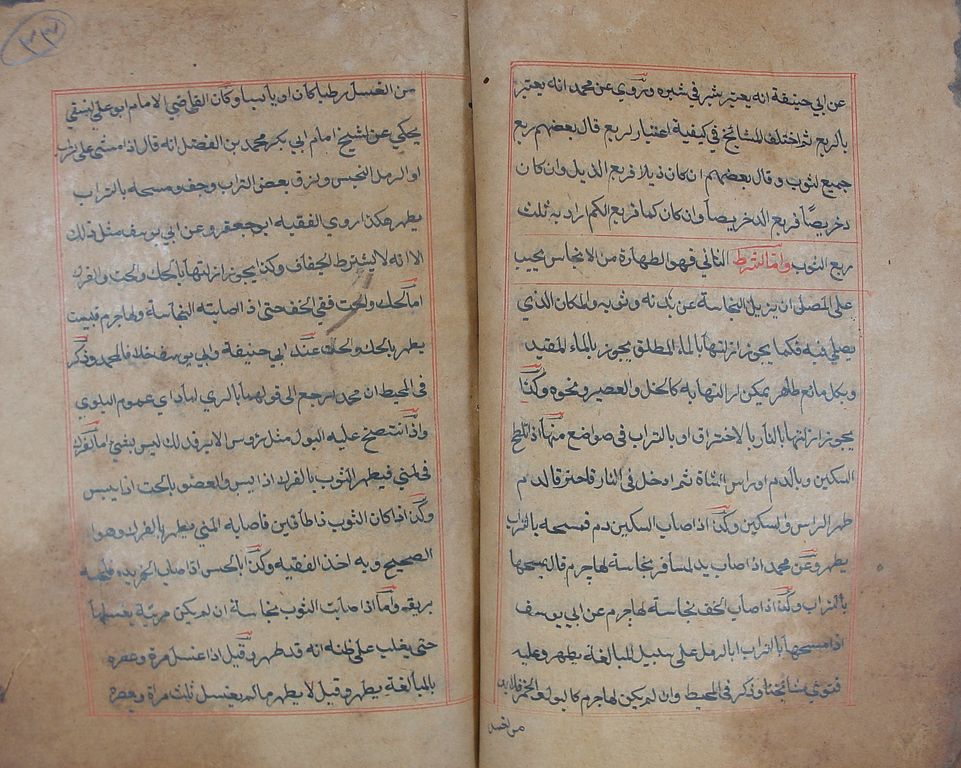 عن ابي حنيفة انه يعتبر شبر في شبره وروي عن محمد انه يعتبر
بالربع ثم اختلف المشائخ في كيفية اعتبار الربع قال بعضهم ربع
جميع الثوب وقال بعضهم ان كان ذيلا فربع الذيل وان كان
دخريصاً فربع الدخريصاً وان كان كما فربع الكم اراد به ثلث
ربع الثوب واما الشرط الثاني فهو الطهارة من الانجاس يجب
على المصلي ان يزيل النجاسة عن بدنه وثوبه والمكان الذي
يصلي فيه فكما يجوز ازالتها بالماء المطلق يجوز بالماء المقيد
وبكل مائع طاهر يمكن ازالتها به كالخل والعصير ونحوه وكذا
يجوز ازالتها بالنار بالاحتراق او بالتراب في مواضع منها اذا تلطخ
السكين بالدم او راس الشاة ثم ادخل في النار فاحترق الدم
طهر الراس والسكين وكذا اذا صاب السكين دم فمسحه بالتراب
يطهر وعن محمد اذا صاب يد المسافر نجاسة لها جرم قال يمسحها
بالتراب وكذا اذا صاب الخف نجاسة لها جرم عن ابي يوسف
اذا مسحها بالتراب او بالرمل على سبيل المبالغة يطهر وعليه
فتوى مشائخنا وذكر في المحيط وان لم يكن لها جرم كالبول والخمر فلا بد
من الغسل
من الغسل رطبا كان او يابسا وكان القاضي الامام ابو علي النسفي
يحكي عن الشيخ امام ابي بكر محمد بن الفضل انه قال اذا مشى على التراب
او الرمل النجس ولزق بعض التراب وجف ومسحه بالتراب
يطهر هكذا روي الفقيه ابو جعفر وعن ابي يوسف مثل ذلك
الا انه لا يشترط الجفاف وكذا يجوز ازالتها بالحك والحت والفرك
اما الحك والحت ففي الخف حتى اذا صابته النجاسة ولها جرم فيبست
يطهر بالحك والحت عند ابي حنيفة وابي يوسف خلافا لمحمد وذكر
في المحيط ان محمد رجع الى قولهما بالري لما راى عموم البلوى
واذا انتضح عليه البول مثل رؤس الابر فذلك ليس بشئ اما الفرك
في المني فيطهر الثوب بالفرك اذا يبس والعضو بالحت اذا يبس
وكذا اذا كان الثوب ذا طاقين فاصابه المني يطهر بالفرك وهو
الصحيح وبه اخذ الفقيه وكذا بالحس اذا صاب الخمر يده فلحسه
بريقه واما اذا صابت الثوب نجاسة ان لم يكن مرئية يغسلها
حتى يغلب على ظنه انه قد طهر وقيل اذا غسل مرة وعصره
بالمبالغة يطهر وقيل لا يطهر ما لم يغسل ثلث مرة ويعصره